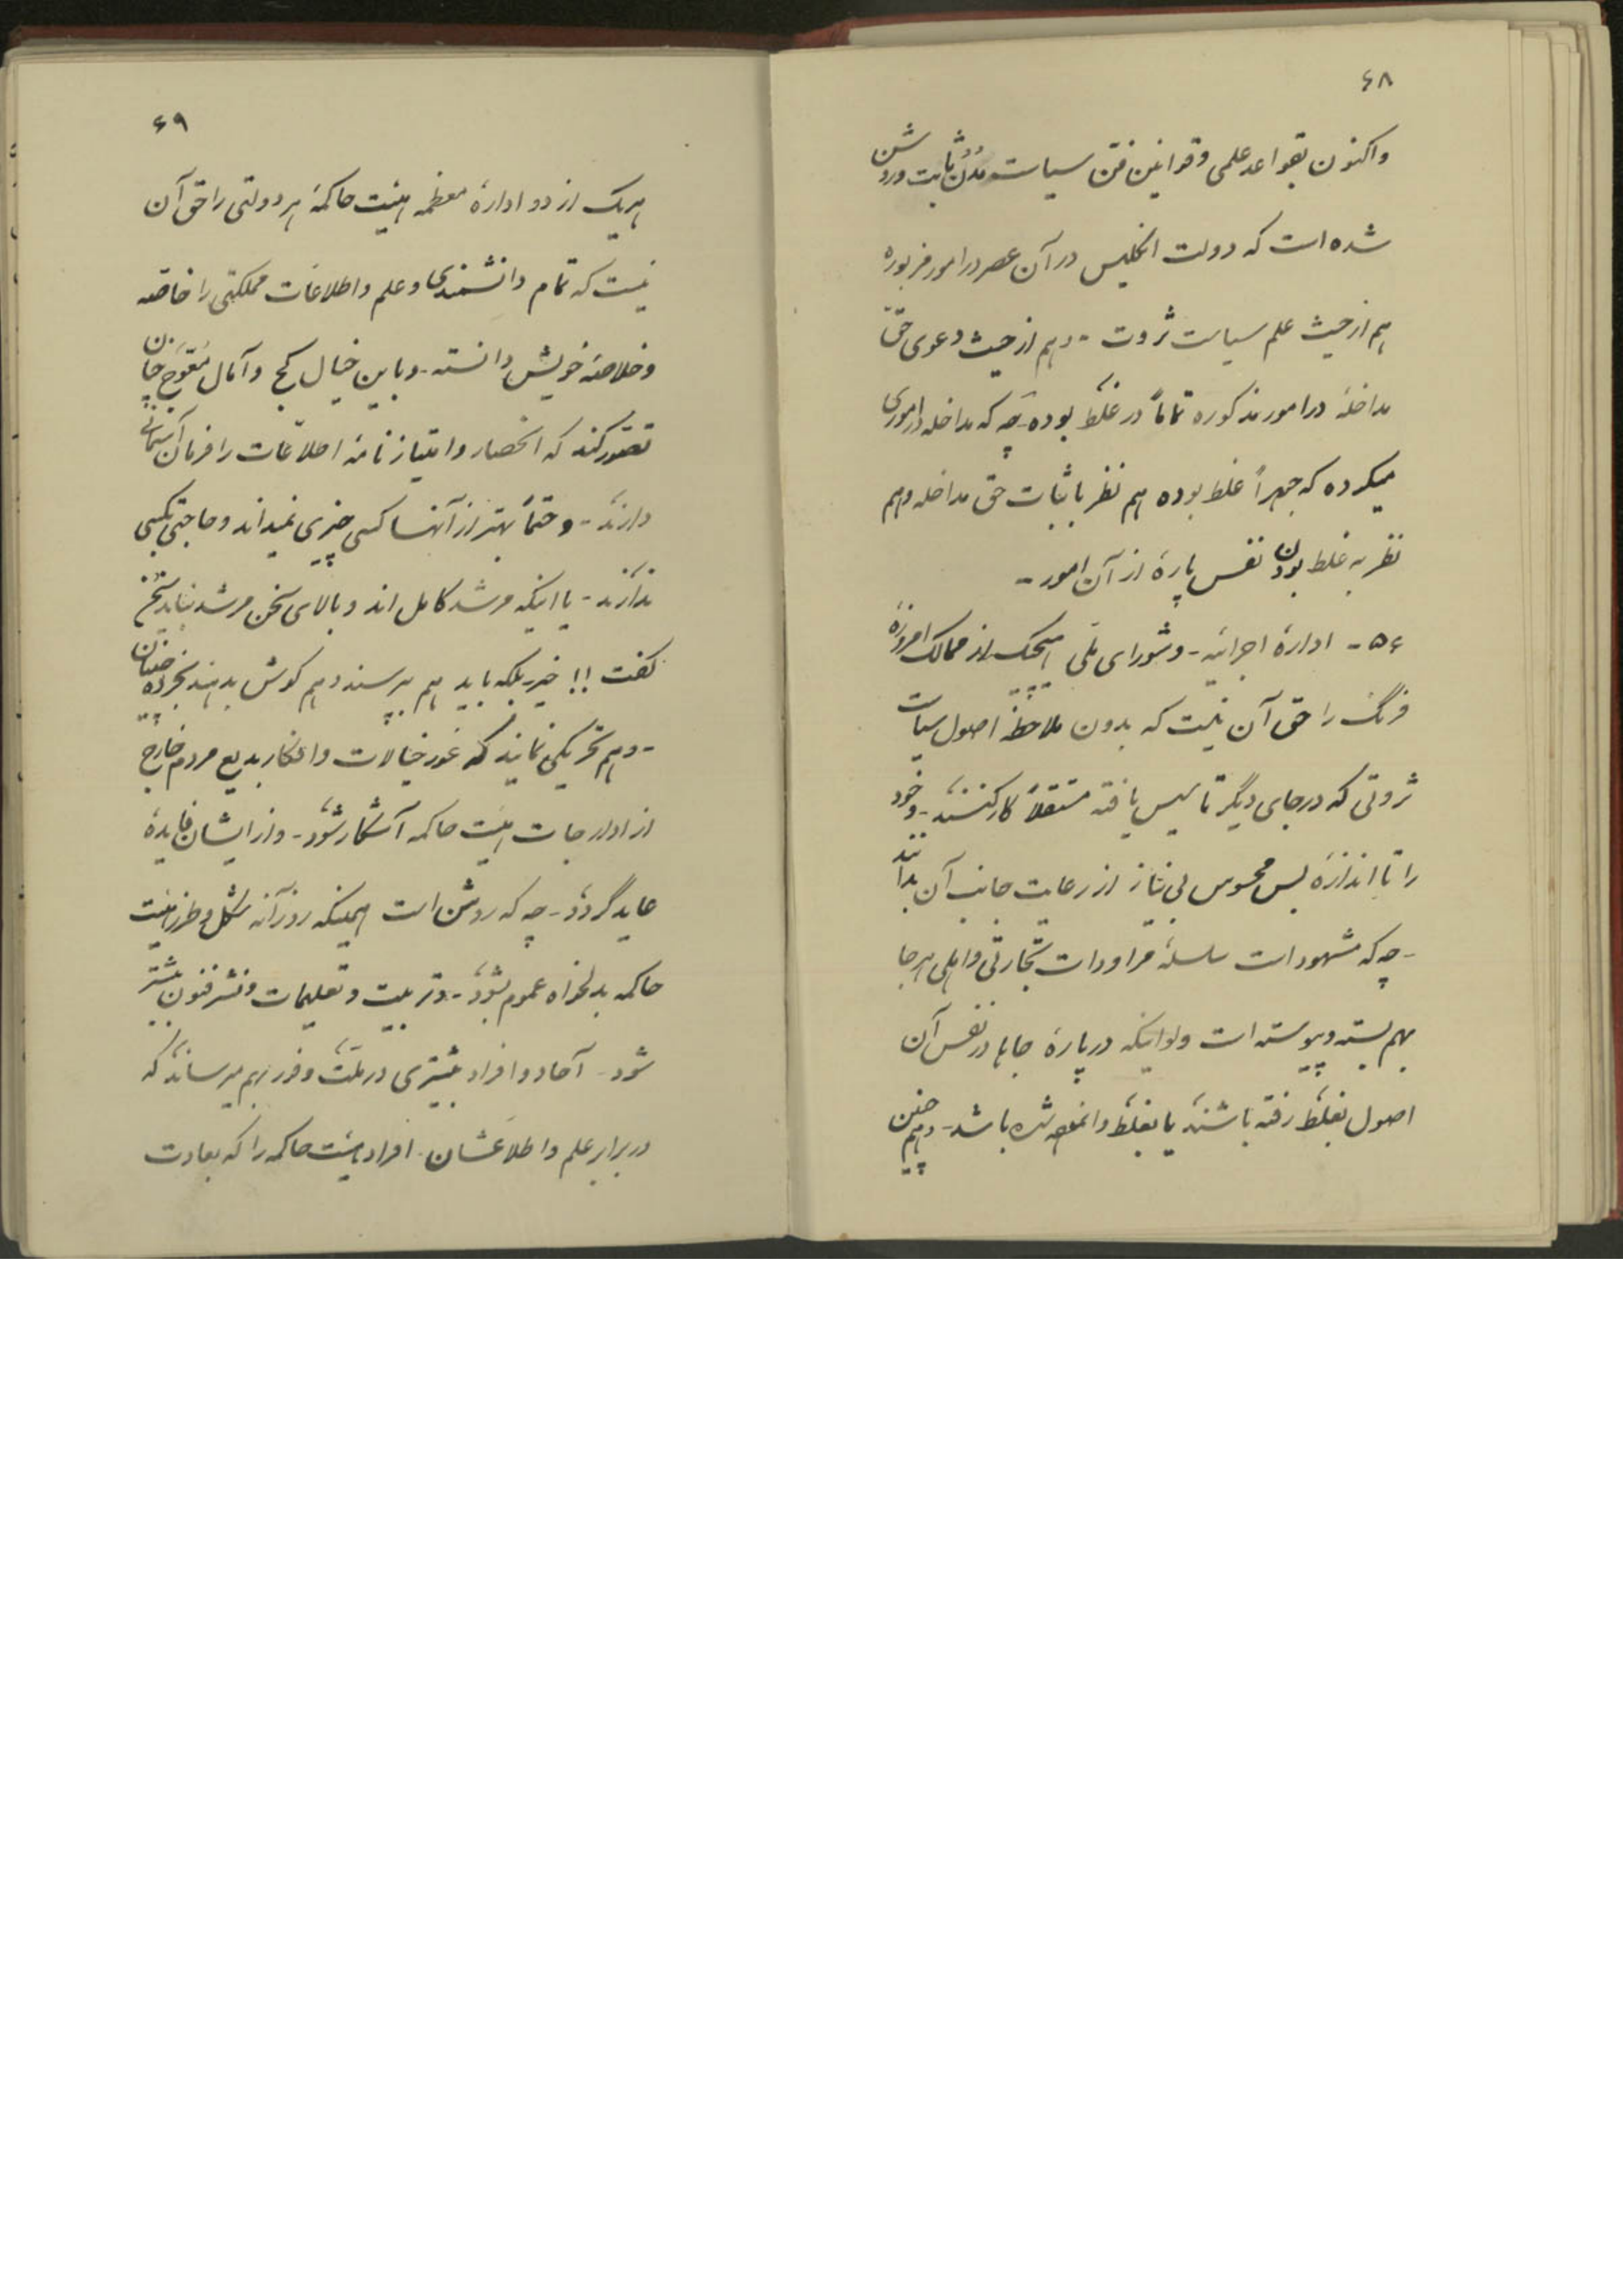 ۶۸
واکنون بقواعد علمی و قوانین فن سیاست مُدُن ثابت و روشن
شده است که دولت انگلیس در آن عصر در امور مزبوره
هم از حیث علم سیاست ثروت - و هم از حیث دعوی حق
مداخلهٔ در امور مذکوره تماماً در غلط بوده - چه که مداخله در اموری
میکرده که جهراً غلط بوده هم نظر باثبات حق مداخله و هم
نظر به غلط بودن نفس پارهٔ از آن امور -
۵۶ - ادارهٔ اجرائیه - و شورای ملی هیچیک از ممالک امروزهٔ
فرنگ را حق آن نیست که بدون ملاحظهٔ اصول سیاست
ثروتی که در جای دیگر تأسیس یافته مستقلاً کار کنند - و خود
را تا اندازهٔ بس محسوس بی نیاز از رعایت جانب آن بدانند
- چه که مشهود است سلسلهٔ مراودات تجارتی و اهلی هر جا
بهم بسته و پیوسته است ولو اینکه در پارهٔ جاها در نفس آن
اصول بغلط رفته باشند یا بغلط وانمود شده باشد - و هم چنین
۶۹
هریک از دو ادارهٔ معظمه هیئت حاکمهٔ هر دولتی را حق آن
نیست که تمام دانشمندی و علم و اطلاعات مملکتی را خاصه
و خلاصهٔ خویش دانسته - و باین خیال کج و آمال مُعوَّج چنان
تصور کنند که انحصار و امتیاز نامهٔ اطلاعات را فرمان آسمانی
دارند - و حتماً بهتر از آنها کسی چیزی نمیداند و حاجتی بکسی
ندارند - یا اینکه مرشد کامل اند و بالای سخن مرشد نباید سخن
گفت !! خیر بلکه باید هم بپرسند و هم گوش بدهند بخرده چینان
- و هم تحریکی نمایند که غور خیالات و افکار بدیع مردم خارج
از ادارجات هیئت حاکمه آشکار شود - و از ایشان فایدهٔ
عاید گردد - چه که روشن است همینکه روزآنه شکل و طرز هیئت
حاکمه بدلخواه عموم بشود - و تربیت و تعلیمات و نشر فنون بیشتر
شود - آحاد و افراد بیشتری در ملت وفور بهم میرسانند که
در برابر علم و اطلاعشان - افراد هیئت حاکمه را که بعادت